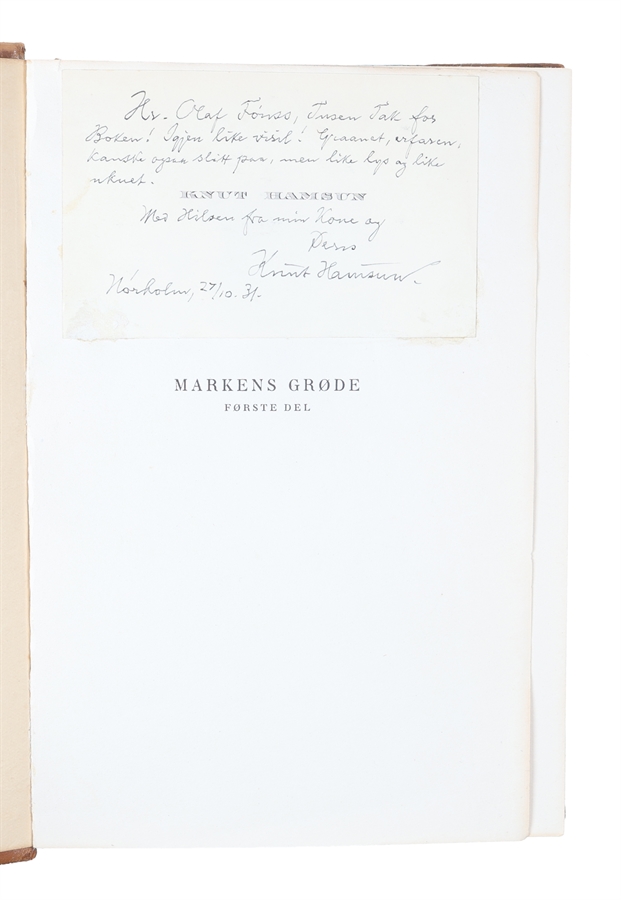 Hr. Olaf Fönss, Tusen Tak for
Boken! Igjen like viril! Graanet, erfaren,
kanske ogsaa slitt paa, men like lys og like
uknet.
KNUT HAMSUN
Med Hilsen fra min Kone og
Deres
Knut Hamsun.
Nörholm, 27/10. 31.
MARKENS GRØDE
FØRSTE DEL